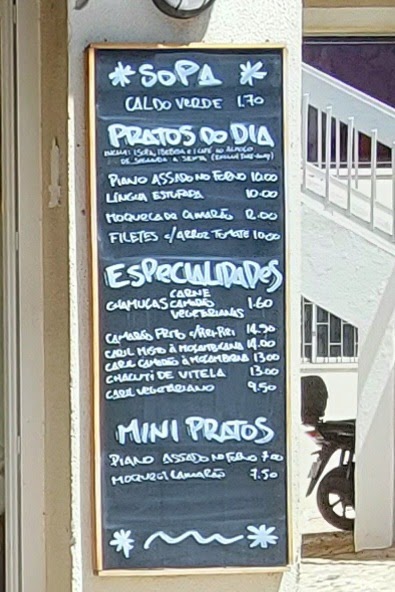 SOPA
CALDO VERDE 1.70
PRATOS DO DIA
INCLUI: SOPA, 1 BEBIDA E 1 CAFÉ AO ALMOÇO
DE SEGUNDA A SEXTA (EXCLUI TAKE-AWAY)
PIANO ASSADO NO FORNO 10.00
LÍNGUA ESTUFADA 10.00
MOQUECA DE CAMARÃO 12.00
FILETES C/ARROZ TOMATE 10.00
ESPECIALIDADES
CHAMUÇAS CARNE
CAMARÃO 1.60
VEGETARIANAS
CAMARÃO FRITO C/PIRI-PIRI 14.90
CARIL MISTO À MOÇAMBICANA 14.00
CARIL CAMARÃO À MOÇAMBICANA 13.00
CHACUTI DE VITELA 13.00
CARIL VEGETARIANO 9.50
MINI PRATOS
PIANO ASSADO NO FORNO 7.00
MOQUECA CAMARÃO 7.50